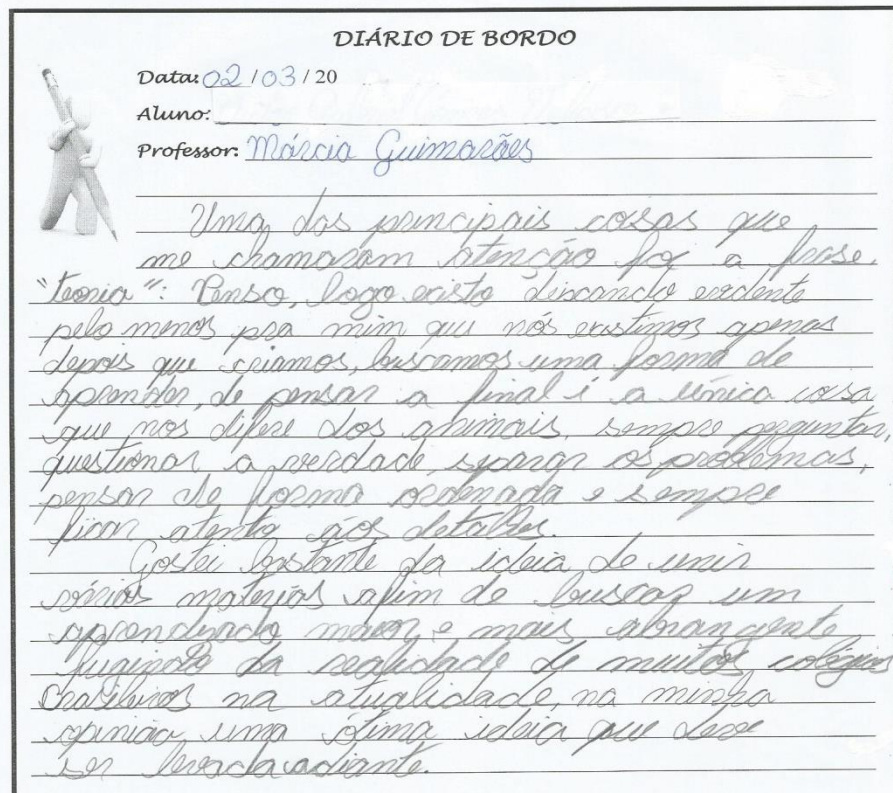 DIÁRIO DE BORDO
Data: 02 / 03 / 20
Aluno:
Professor: Márcia Guimarães
Uma das principais coisas que
me chamaram atenção foi a frase,
"teoria": Penso, logo existo deixando evidente
pelo menos pra mim que nós existimos apenas
depois que criamos, buscamos uma forma de
aprender, de pensar a final é a única coisa
que nos difere dos animais, sempre perguntar,
questionar a verdade, separar os problemas,
pensar de forma ordenada e sempre
ficar atento aos detalhes.
Gostei bastante da ideia de unir
várias matérias afim de buscar um
aprendizado maior, e mais abrangente
fugindo da realidade de muitos colégios
brasileiros na atualidade, na minha
opinião uma ótima ideia que deve
ser levada adiante.